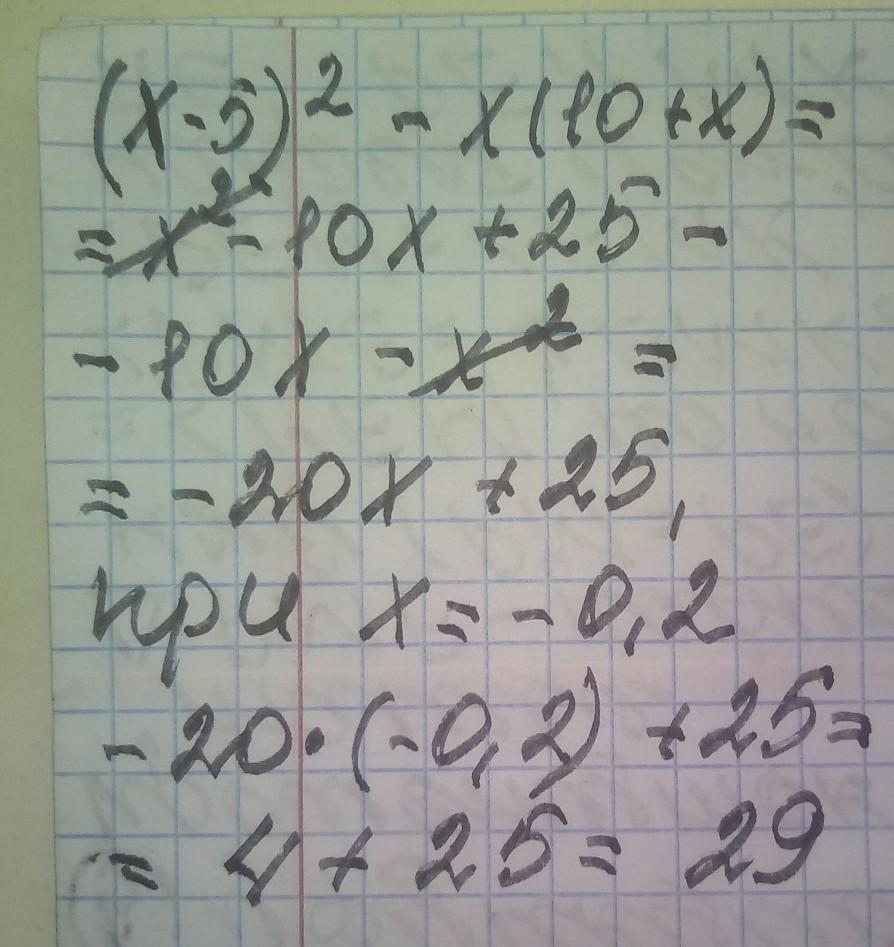 (x-5)² - x(10+x)=
=x²-10x+25-
-10x-x² =
=-20x+25,
при x=-0,2
-20·(-0,2)+25=
= 4+25= 29